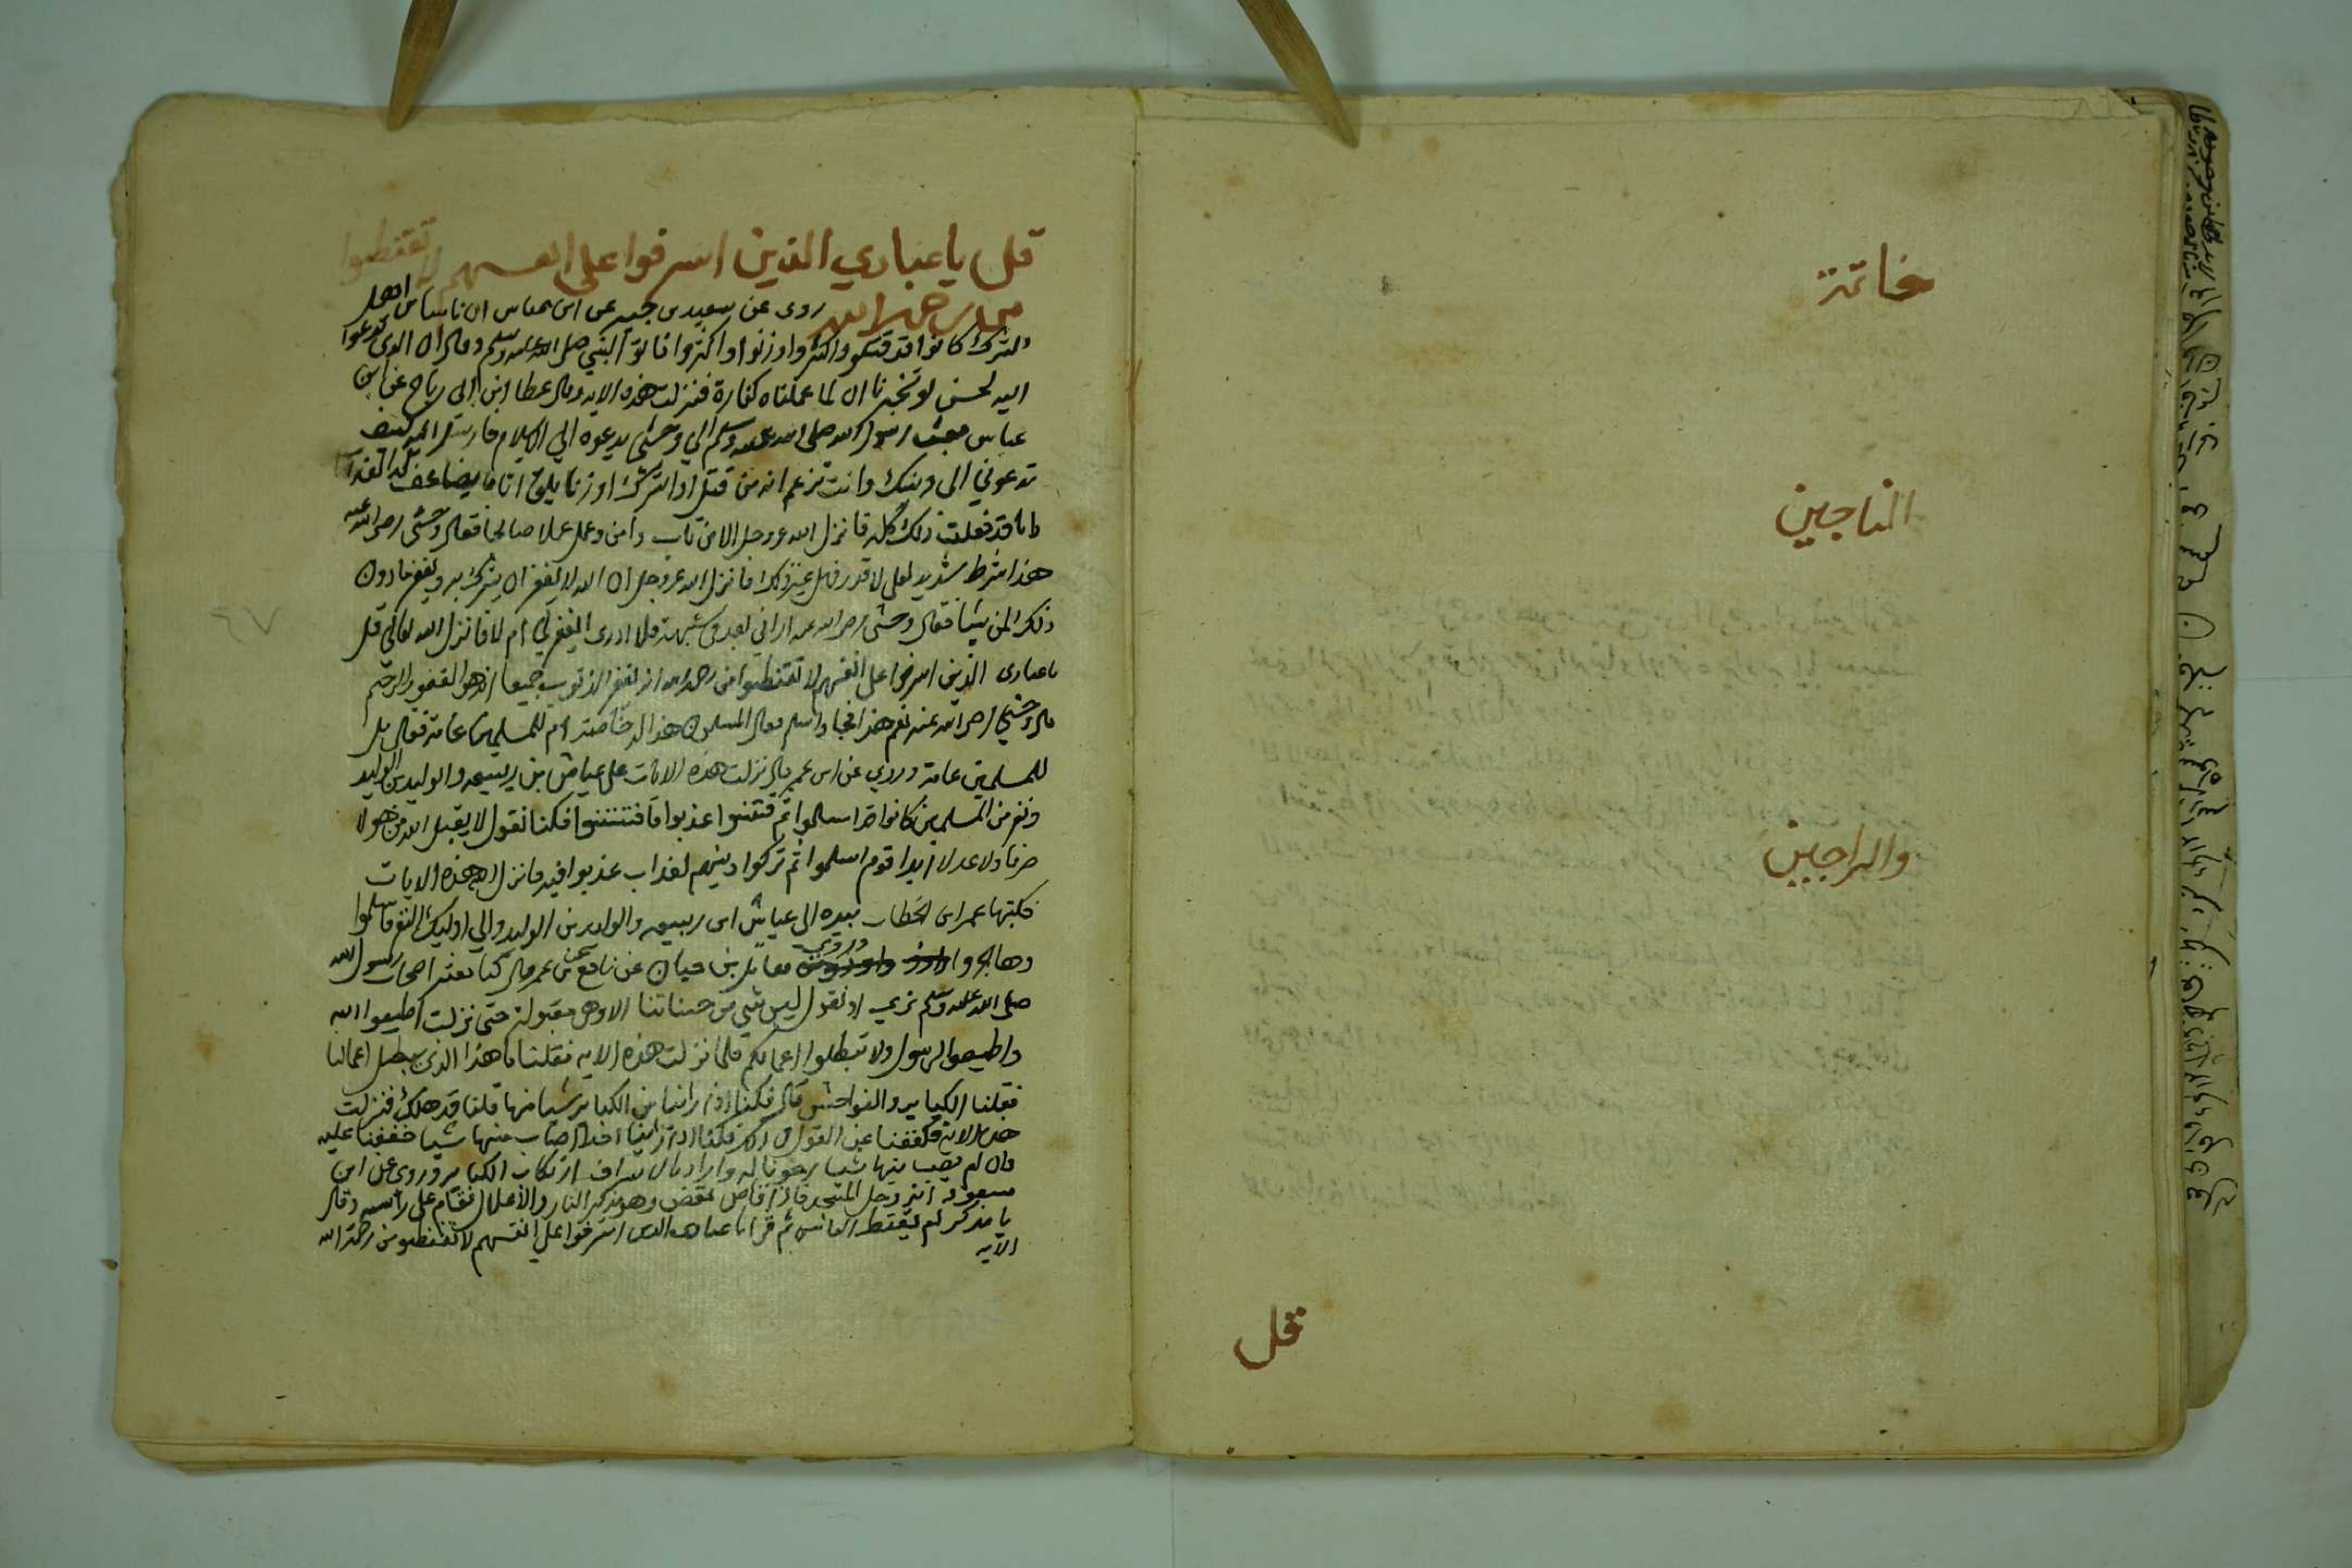 خاتمة
الناجين
والراجين
قل
قل يا عبادي الذين اسرفوا على انفسهم لا تقنطوا
من رحمة الله روى عن سعيد بن جبير عن ابن عباس ان ناسا من اهل
الشرك كانوا قد قتلوا واكثروا وزنوا واكثروا فاتوا النبي صلى الله عليه وسلم وقالوا ان الذي تدعوا
اليه لحسن لو تخبرنا ان لما عملناه كفارة فنزلت هذه الايه وقال عطا ابن ابي رباح عن ابن
عباس بعث رسول الله صلى الله عليه وسلم الي وحشي يدعوه الي الاسلام فارسل اليه كيف
تدعوني الى دينك وانت تزعم انه من قتل او اشرك او زنا يلق اثاما يضاعف له العذاب
وانا قد فعلت ذلك كله فانزل الله عز وجل الا من تاب وامن وعمل عملا صالحا فقال وحشي رضي الله عنه
هذا شرط شديد لعلي لا اقدر فهل غير ذلك فانزل الله عز وجل ان الله لا يغفر ان يشرك به ويغفر ما دون
ذلك لمن يشا فقال وحشي رضي الله عنه اراني بعد في شبهة فلا ادرى ايغفر لي ام لا فانزل الله تعالى قل
يا عبادى الذين اسرفوا على انفسهم لا تقنطوا من رحمة الله ان الله يغفر الذنوب جميعا انه هو الغفور الرحيم
قال وحشي رضي الله عنه نعم هذا فجا واسلم فقال المسلمون هذا له خاصة ام للمسلمين عامة فقال بل
للمسلمين عامة وروي عن ابن عمر قال نزلت هذه الايات على عياش بن ربيعه والوليد بن الوليد
ونفر من المسلمين كانوا قد اسلموا ثم فتنوا عذبوا فافتتنوا فكنا نقول لا يقبل الله من هولا
صرفا ولا عدلا ابدا قوم اسلموا ثم تركوا دينهم لعذاب عذبوا فيه فانزل الله هذه الايات
فكتبها عمر ابن الخطاب بيده الى عياش ابن ربيعه والوليد بن الوليد والي اوليك النفر فاسلموا
وهاجروا وروي مقاتل بن حيان عن نافع عن ابن عمر قال كنا معشر اصحاب رسول الله
صلى الله عليه وسلم نرى او نقول ليس شي من حسناتنا الا وهي مقبولة حتى نزلت اطيعوا الله
واطيعوا الرسول ولا تبطلوا اعمالكم فلما نزلت هذه الايه فقلنا ما هذا الذى يبطل اعمالنا
فقلنا الكباير والفواحش قال فكنا اذا راينا من الكباير شيا منها قلنا قد هلك فنزلت
هذه الاية فكففنا عن القول في ذلك فكنا اذا راينا احدا اصاب منها شيا خففنا عليه
وان لم يصب منها شيا رجونا له واراد بالاسراف ارتكاب الكباير وروى عن ابن
مسعود انه دخل المسجد فاذا قاص يقص وهو يذكر النار والاغلال فقام على راسه وقال
يا مذكر لم تقنط الناس ثم قرا يا عبادى الذين اسرفوا على انفسهم لا تقنطوا من رحمة الله
الايه